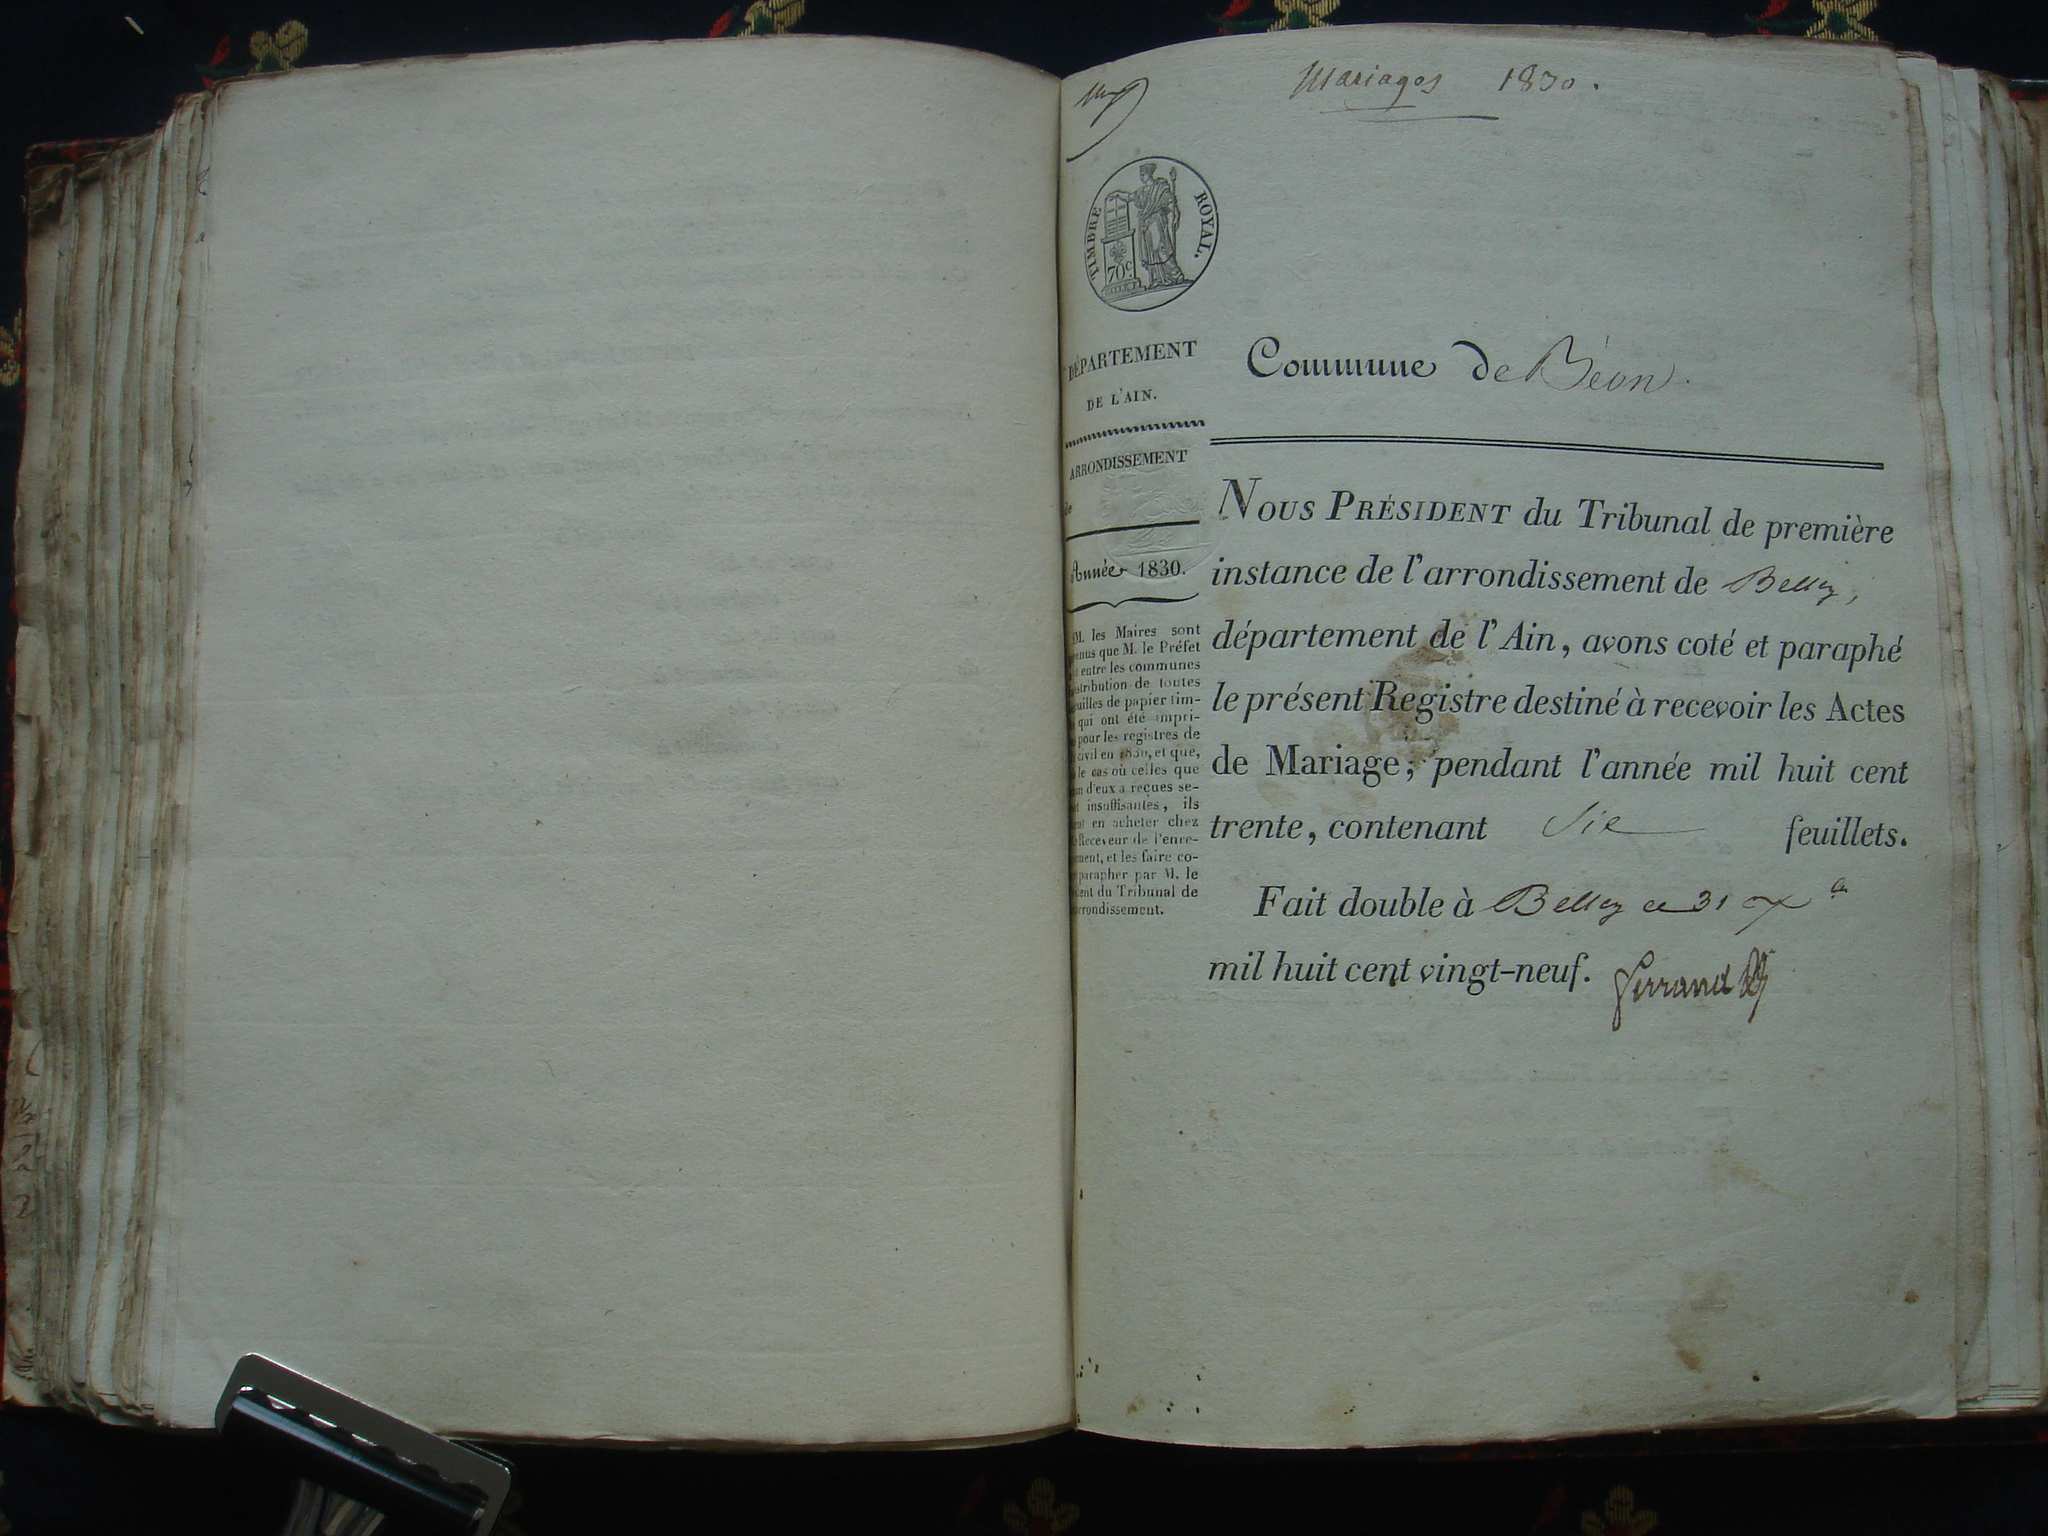 Mariages 1830.
TIMBRE ROYAL.
70c.
DÉPARTEMENT
DE L'AIN.
ARRONDISSEMENT
de
Année 1830.
M. les Maires sont
nus que M. le Préfet
entre les communes
stribution de toutes
uilles de papier tim-
qui ont été impri-
pour les registres de
civil en 1830, et que,
le cas où celles que
un d'eux a reçues se-
t insuffisantes, ils
ont en acheter chez
Receveur de l'enre-
ment, et les faire co-
parapher par M. le
ent du Tribunal de
rrondissement.
Commune de Béon.
NOUS PRÉSIDENT du Tribunal de première
instance de l'arrondissement de Belley,
département de l'Ain, avons coté et paraphé
le présent Registre destiné à recevoir les Actes
de Mariage, pendant l'année mil huit cent
trente, contenant Six feuillets.
Fait double à Belley ce 31 Xbre
mil huit cent vingt-neuf. Ferrand